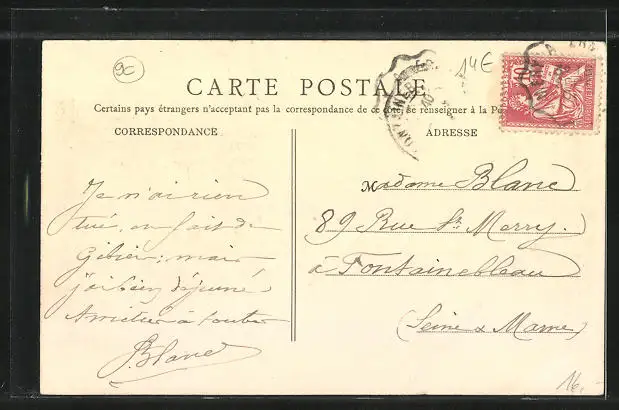 9c
14€
CARTE POSTALE
Certains pays étrangers n'acceptant pas la correspondance de ce côté, se renseigner à la Po
CORRESPONDANCE
ADRESSE
Je n'ai rien
tué, en fait de
Gibier; mais
j'ai bien déjeuné
Amitiés à toutes
JBlanc
Madame Blanc
89 Rue St. Merry.
à Fontainebleau
(Seine & Marne)
10
16.-